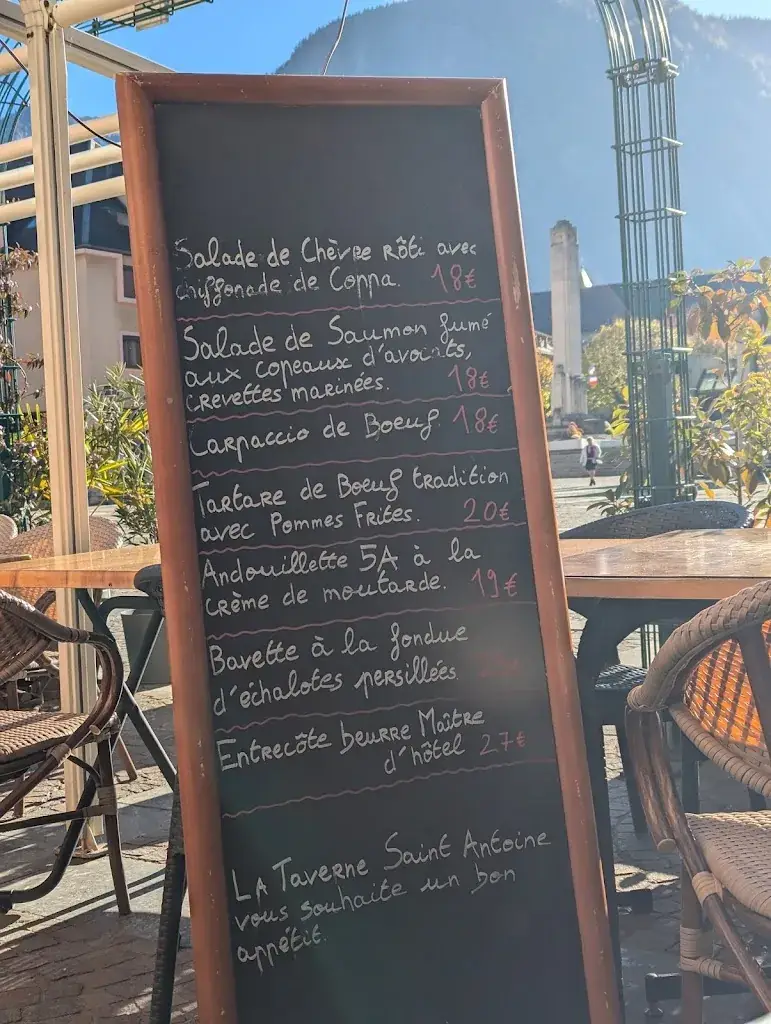 Salade de Chèvre Rôti avec
chiffonade de Coppa. 18€
Salade de Saumon fumé
aux copeaux d'avocats,
crevettes marinées. 18€
Carpaccio de Boeuf 18€
Tartare de Boeuf tradition
avec Pommes Frites. 20€
Andouillette 5A à la
crème de moutarde. 19€
Bavette à la fondue
d'échalotes persillées
Entrecôte beurre Maître
d'hôtel 27€
La Taverne Saint Antoine
vous souhaite un bon
appétit.